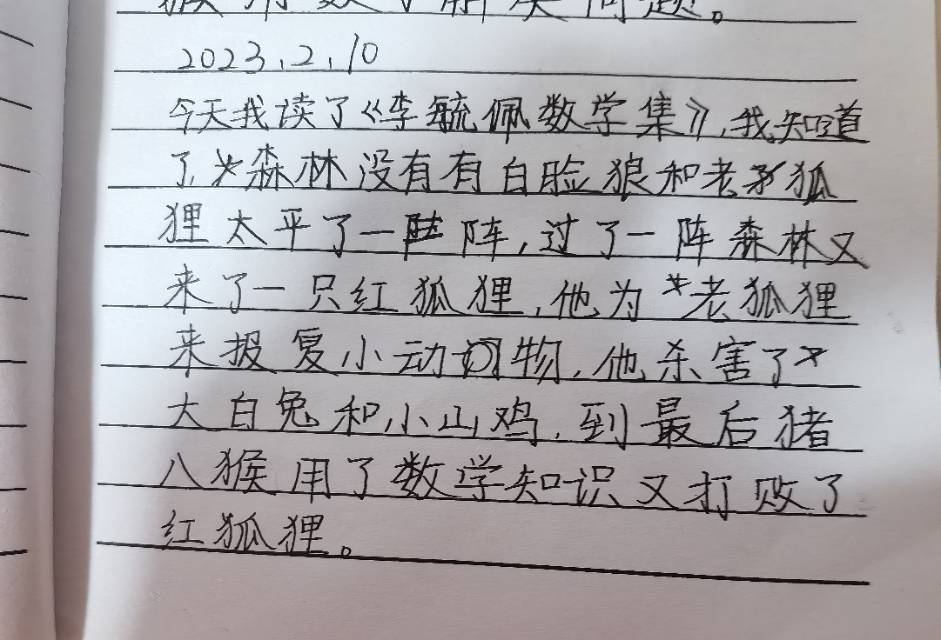 猴用数学解决问题。
2023.2.10
今天我读了《李毓佩数学集》,我知道
了森林没有有白脸狼和老狐
狸太平了一阵,过了一阵森林又
来了一只红狐狸,他为老狐狸
来报复小动物,他杀害了
大白兔和小山鸡,到最后猪
八猴用了数学知识又打败了
红狐狸。